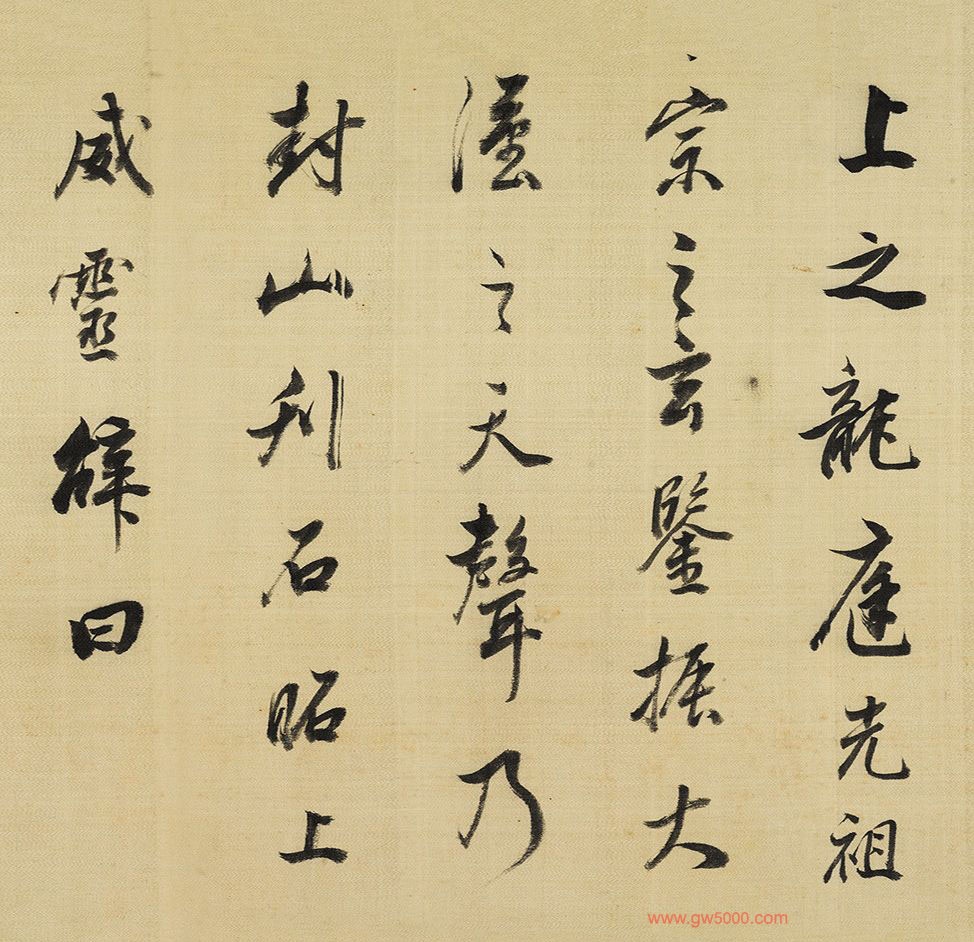 上之龍庭光祖
宗之玄鑒振大
漢之天聲乃
封山刊石昭上
威靈辭曰
www.gw5000.com